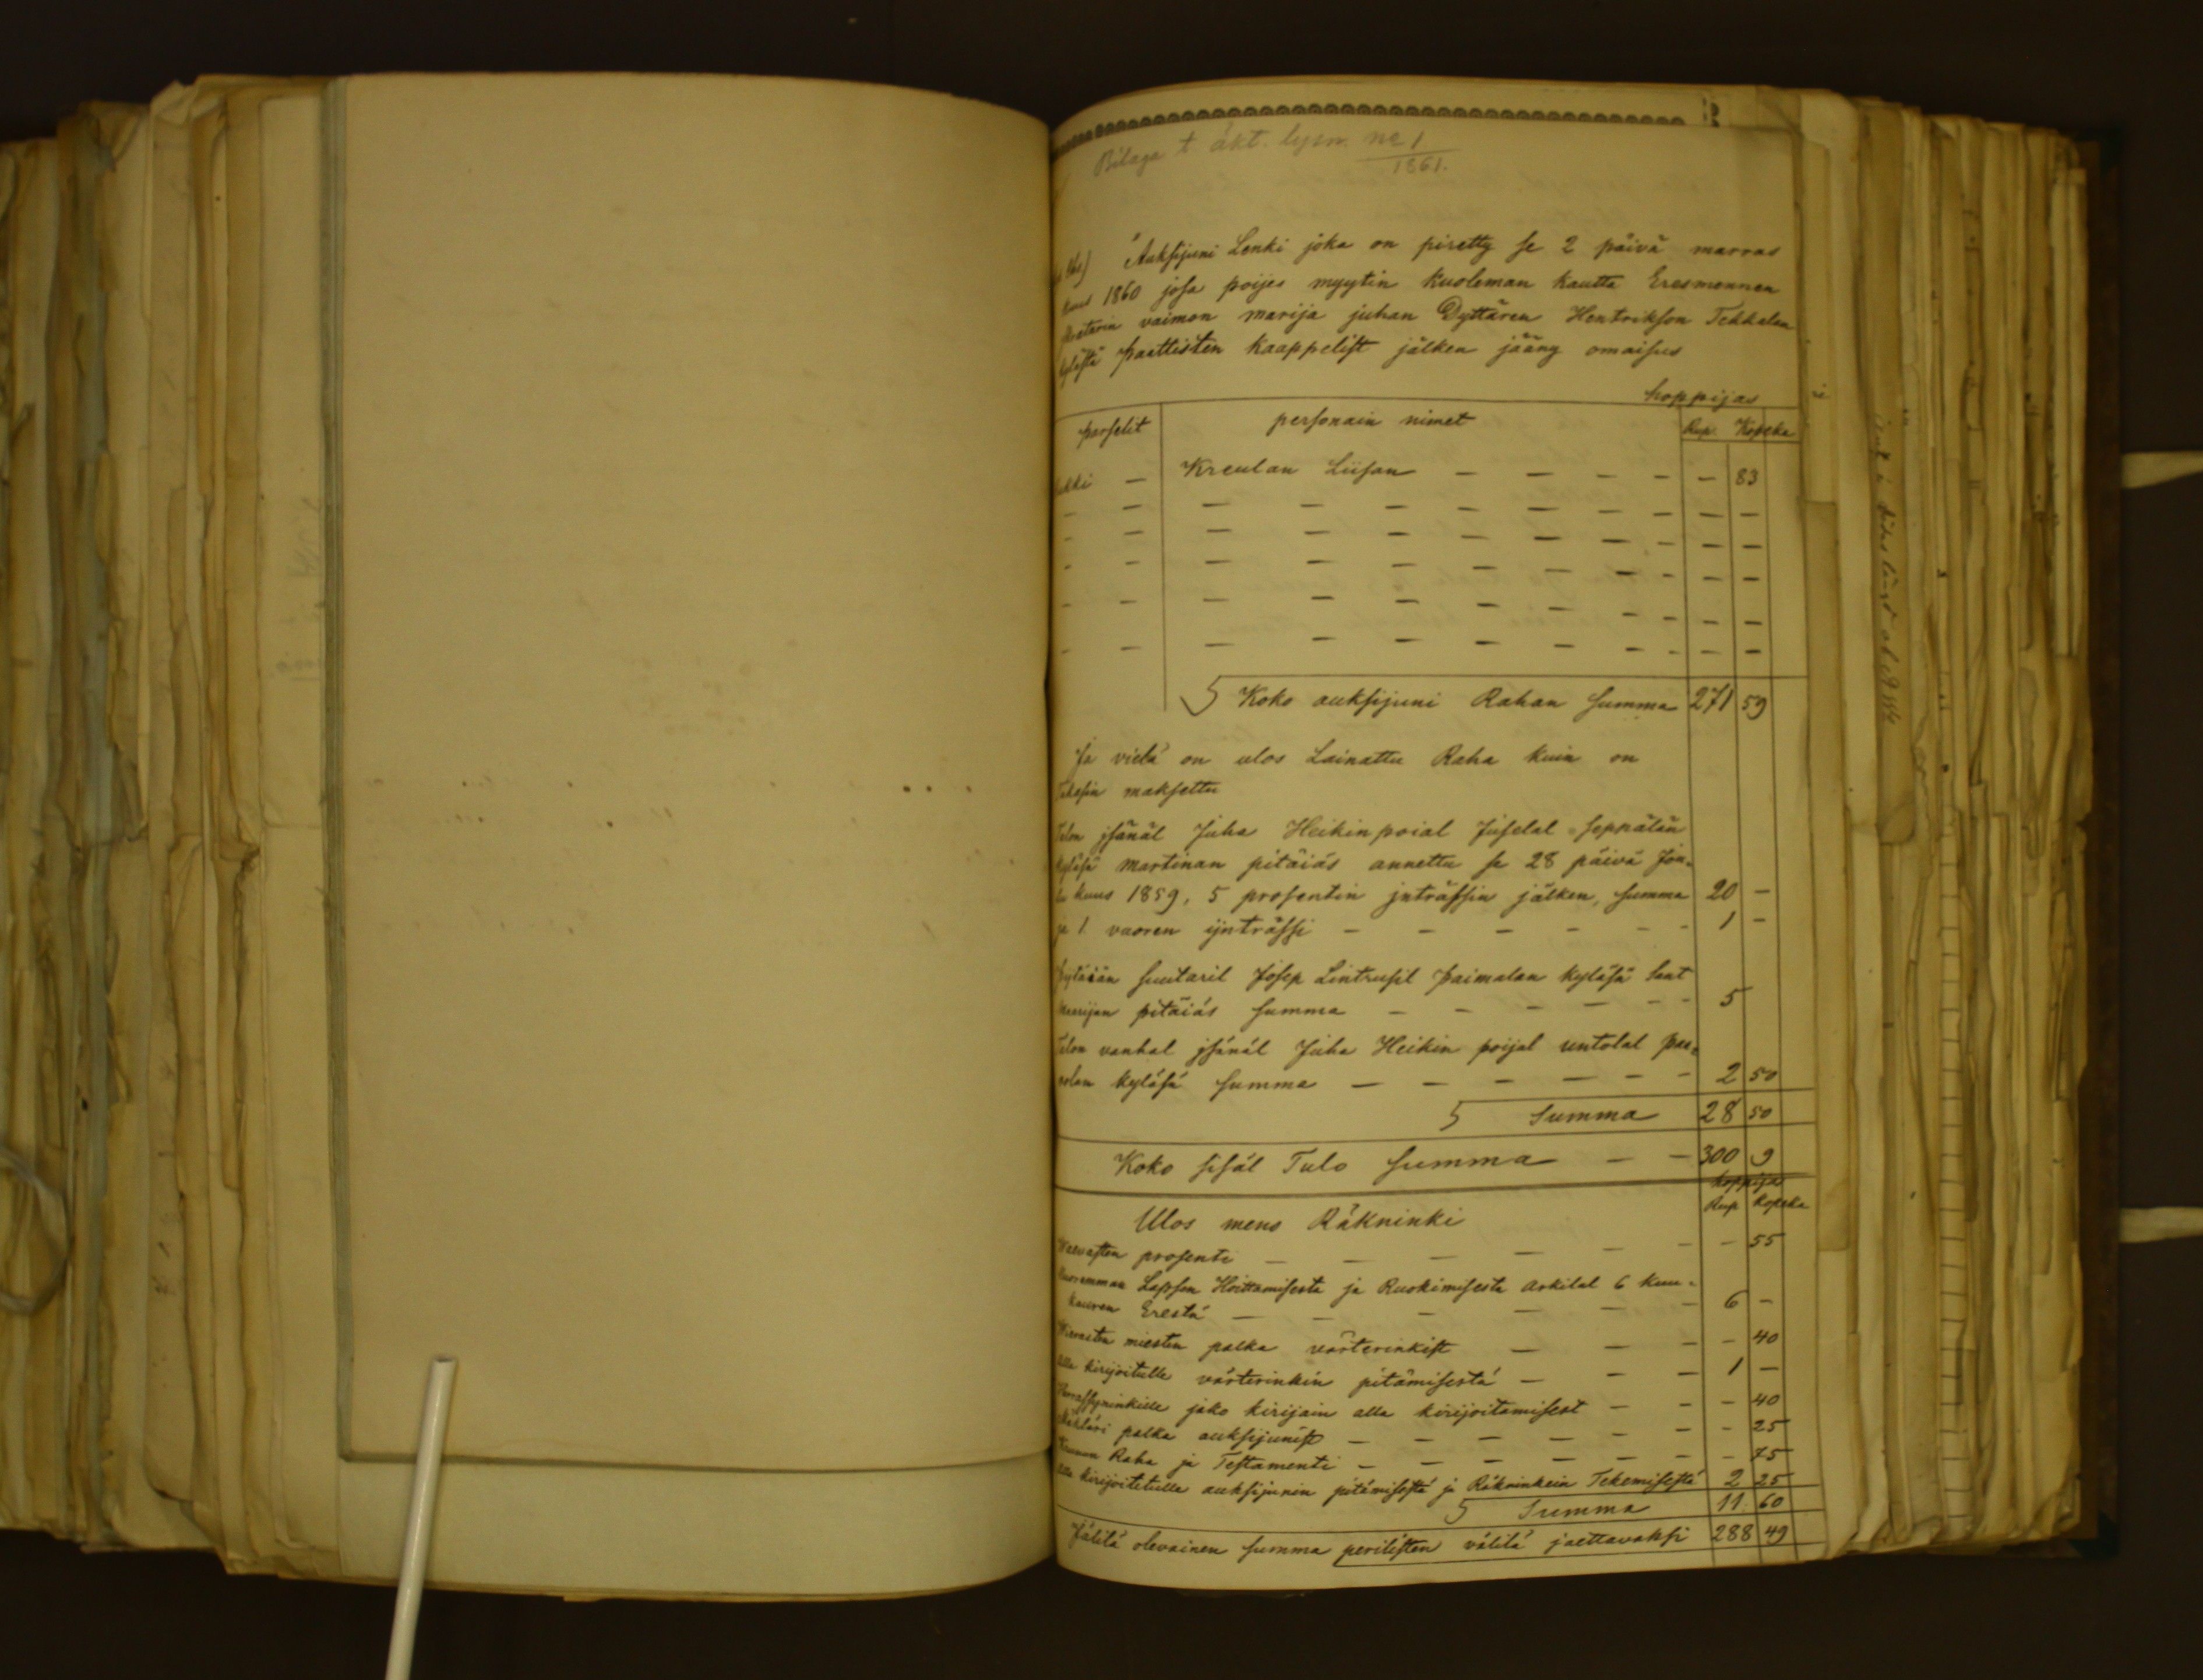 Bilaga t. äkt. lysn. No 1
1861.
Auksijuni Lenki joka on piretty se 2 päivä marras
kuus 1860 josa poijes myytin kuoleman kautta Eresmennen
vaimon marija juhan Dyttären Hentrikson Tekkalan
kylästä paattisten kaappelist jälken jääny omaisus
hoppijas
parselit personain nimet Rup. Kopeka
Kreulan Liisan — — — — — — 83
— — — — — — — — — —
— — — — — — — — — —
— — — — — — — — — —
— — — — — — — — — —
— — — — — — — — — —
Koko auksijuni Rahan summa 271 59
Ja vielä on ulos Lainattu Raha kuin on
takasin maksettu
Talon jsänäl Juha Heikin poial Juselal seppälän
kyläsä martinan pitäiäs annettu se 28 päivä Jou-
lu kuus 1859, 5 prosentin jnträssin jälken, summa 20 —
ja 1 vuoren ijnträssi — — — — — — 1 —
suutaril Josep Lintrusil paimalan kyläsä sant
maarijan pitäiäs summa — — — — — — 5
Talon vanhal jsänäl Juha Heikin poijal untolal paa-
kyläsä summa — — — — — — 2 50
Summa 28 50
Koko sisäl Tulo summa — — 300 9
hoppija
Ulos meno Räkninki Rup Kopeka
prosenti — — — — — — — 55
Nuoremman Lapsen Hoittamisesta ja Ruokimisesta Arkilal 6 kuu-
kauren Erestä — — — — — — 6 —
miesten palka värterinkist — — — — 40
alla kirijoitulle värterinkin pitämisestä — — — 1 —
jako kirijain alla kirijoitamisest — — — 40
palka auksijunist — — — — — — — 25
Raha ja Testamenti — — — — — — — 75
alla kirijoitetulle auksijunin pitämisestä ja Räkninkein Tekemisestä 2 25
Summa 11 60
Jälilä olevainen summa perilisten välilä jaettavaksi 288 49